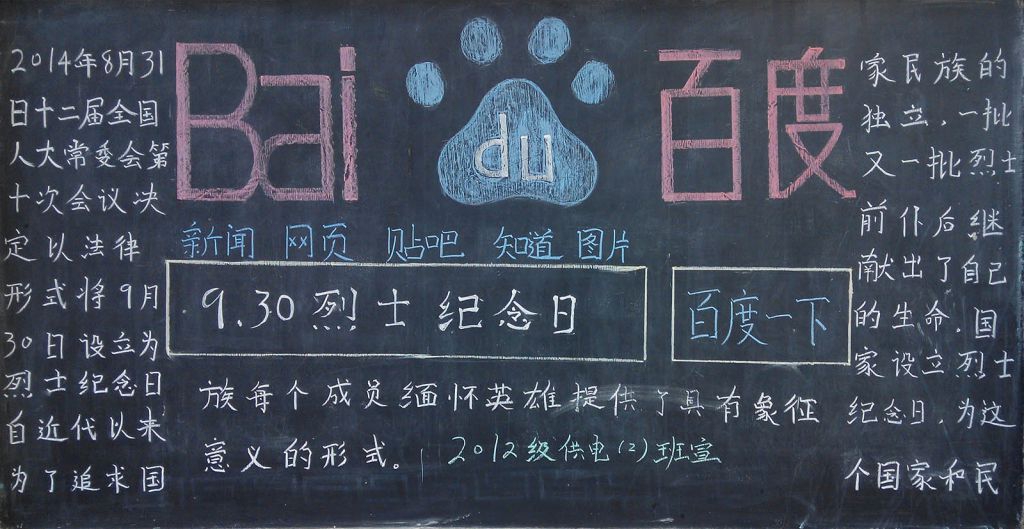 Bai du 百度
新闻 网页 贴吧 知道 图片
9.30烈士纪念日
百度一下
2014年8月31
日十二届全国
人大常委会第
十次会议决
定以法律
形式将9月
30日设立为
烈士纪念日
自近代以来
为了追求国
家民族的
独立,一批
又一批烈士
前仆后继
献出了自己
的生命.国
家设立烈士
纪念日,为这
个国家和民
族每个成员缅怀英雄提供了具有象征
意义的形式。
2012级供电(2)班宣